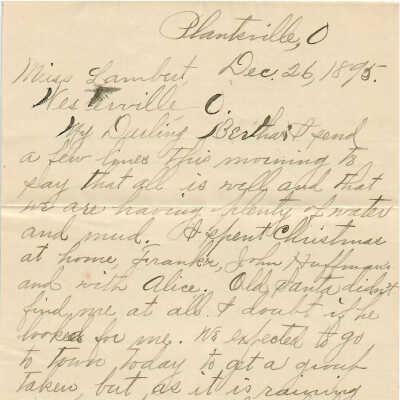 Plankville, O
Miss Lambert, Dec. 26, 1895.
Westerville O.
My Darling Bertha: I send
a few lines this morning to
say that all is well and that
we are having plenty of water
and mud. I spent Christmas
at home, Frank's, John Huffman's
and with Alice. Old Santa didn't
find me at all. I doubt if he
looked for me. We expected to go
to town today to get a group
taken, but, as it is raining